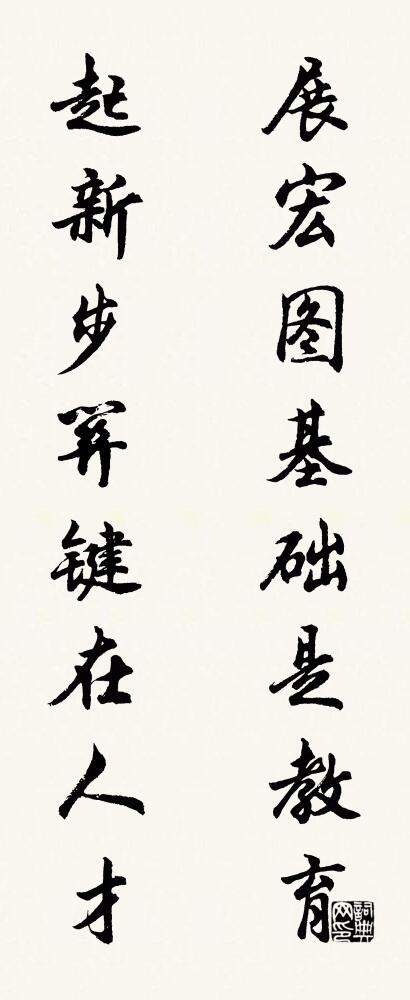 展宏图基础是教育
起新步关键在人才
詞典网印